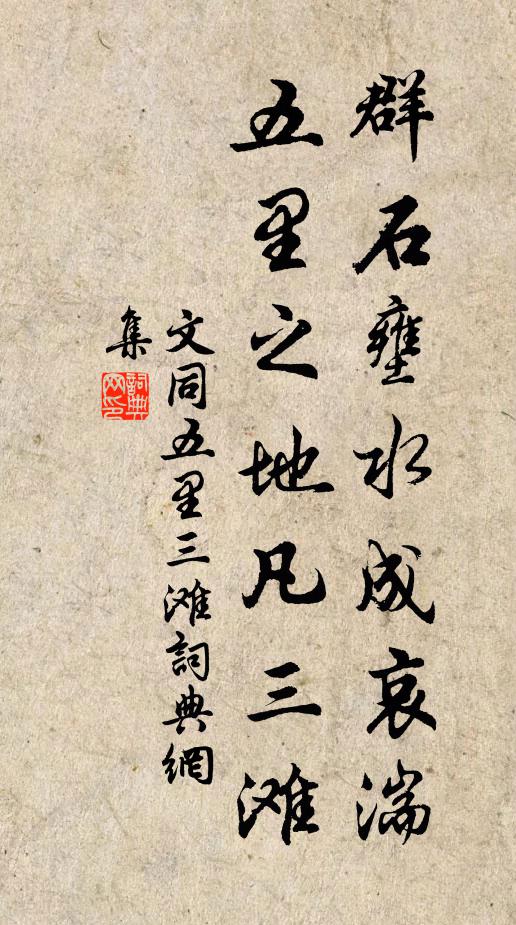 群石壅水成哀湍
五里之地凡三滩
文同五里三滩詞典網
集
詞典
网印